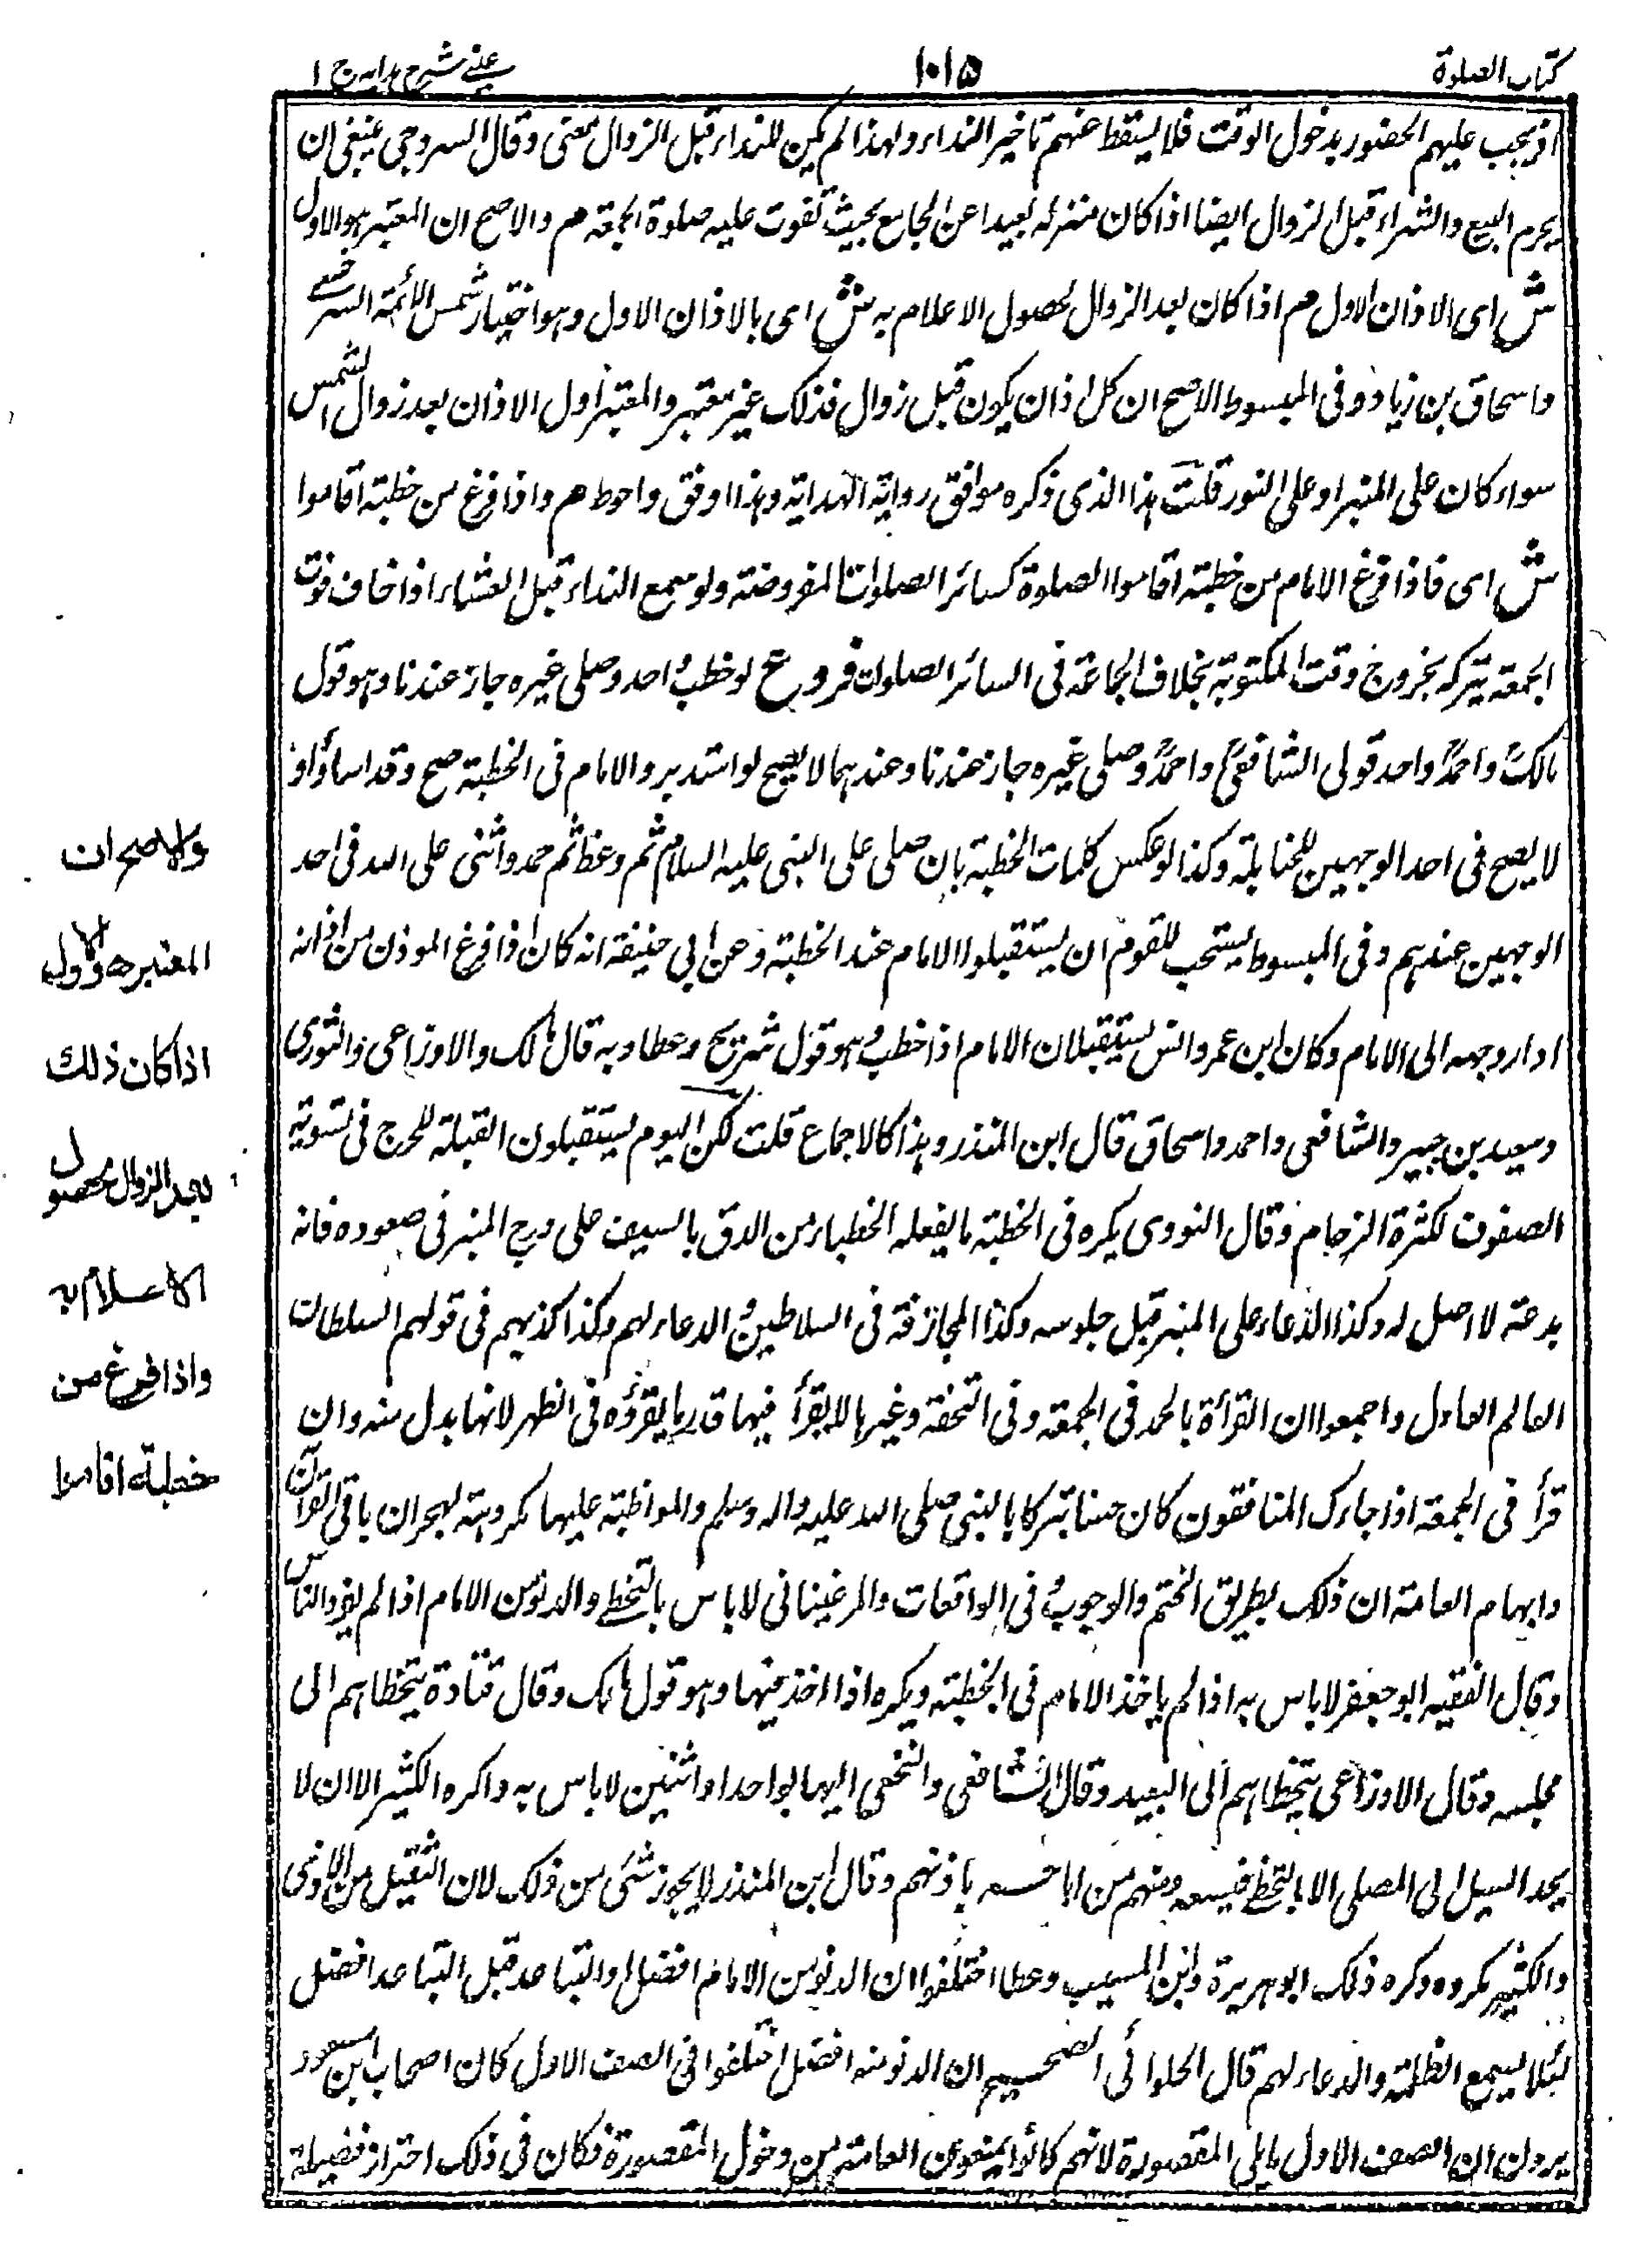 كتاب الصلوة
١٠١٥
عيني شرح هدايه ج ١
اذ يجب عليهم الحضور بدخول الوقت فلا يسقط عنهم تاخير النداء ولهذا لم يكن للنداء قبل الزوال معنى وقال السروجي ينبغي ان
يحرم البيع والشراء قبل الزوال ايضا اذا كان منزله بعيدا عن الجامع بحيث تفوت عليه صلوة الجمعة هم والاصح ان المعتبر هو الاول
ش اى الاذان الاول هم اذا كان بعد الزوال لحصول الاعلام به ش اى بالاذان الاول وهو اختيار شمس الأئمة السرخسي
واسحاق بن زياد وفى المبسوط الاصح ان كل اذان يكون قبل زوال فذلك غير معتبر والمعتبر اول الاذان بعد زوال الشمس
سواء كان على المنبر او على النور قلت هذا الذى ذكره موافق رواية الهداية وهذا اوفق واحوط هم واذا فرغ من خطبته اقاموا
ش اى فاذا فرغ الامام من خطبته اقاموا الصلوة كسائر الصلوات المفروضة ولو سمع النداء قبل العشاء اذا خاف فوت
الجمعة يتركه بخروج وقت المكتوبة بخلاف الجماعة فى السائر الصلوات فروع لو خطب احد وصلى غيره جاز عندنا وهو قول
مالك واحمد واحد قولى الشافعى واحمد وصلى غيره جاز عندنا وعندهما لا يصح لو استدبر والامام فى الخطبة صح وقد اساؤا و
لا يصح فى احد الوجهين للحنابلة وكذا لو عكس كلمات الخطبة بان صلى على النبى عليه السلام ثم وعظ ثم حمد واثنى على الله فى احد
الوجهين عندهم وفى المبسوط يستحب للقوم ان يستقبلوا الامام عند الخطبة وعن ابى حنيفة انه كان اذا فرغ الموذن من اذانه
ادار وجهه الى الامام وكان ابن عمر وانس يستقبلان الامام اذا خطب وهو قول شريح وعطا وبه قال مالك والاوزاعى والثورى
وسعيد بن جبير والشافعى واحمد واسحاق قال ابن المنذر وهذا كالاجماع قلت لكن اليوم يستقبلون القبلة للحرج فى تسوية
الصفوف لكثرة الزحام وقال النووى يكره فى الخطبة ما يفعله الخطباء من الدق بالسيف على درج المنبر فى صعوده فانه
بدعة لا اصل له وكذا الدعاء على المنبر قبل جلوسه وكذا المجازفة فى السلاطين والدعاء لهم وكذا كذبهم فى قولهم السلطان
العالم العادل واجمعوا ان القرأة بالحمد فى الجمعة وفى التحفة وغيرها لا يقرأ فيها قدر ما يقرؤه فى الظهر لانها بدل منه وان
قرأ فى الجمعة اذا جاءك المنافقون كان حسنا تبركا بالنبى صلى الله عليه واله وسلم والمواظبة عليها مكروهة لهجران باقى القرآن
وايهام العامة ان ذلك بطريق الختم والوجوب فى الواقعات والمرغينانى لا باس بالتخطى والدنو من الامام اذا لم يؤذ الناس
وقال الفقيه ابو جعفر لا باس به اذا لم ياخذ الامام فى الخطبة ويكره اذا اخذ فيها وهو قول مالك وقال قتادة يتخطاهم الى
مجلسه وقال الاوزاعى يتخطاهم الى البعيد وقال الشافعى والنخعى اليها بواحد او اثنين لا باس به واكره الكثير الا ان لا
يجد السبيل الى المصلى الا بالتخطى فيسعه ومنهم من اباحه باذنهم وقال ابن المنذر لا يجوز شئ من ذلك لان القليل من الاذى
والكثير مكروه وكره ذلك ابو هريرة وابن المسيب وعطا اختلفوا ان الدنو من الامام افضل او التباعد قيل التباعد افضل
لئلا يسمع الظلمة والدعاء لهم قال الحلوائى الصحيح ان الدنو منه افضل اختلفوا فى الصف الاول كان اصحاب ابن مسعود
يرون ان الصف الاول ما يلى المقصورة لانهم كانوا يمنعون العامة من دخول المقصورة فكان فى ذلك احتراز فضيلة
والاصح ان
المعتبر هو الاول
اذا كان ذلك
بعد الزوال لحصول
الاعلام به
واذا فرغ من
خطبته اقاموا